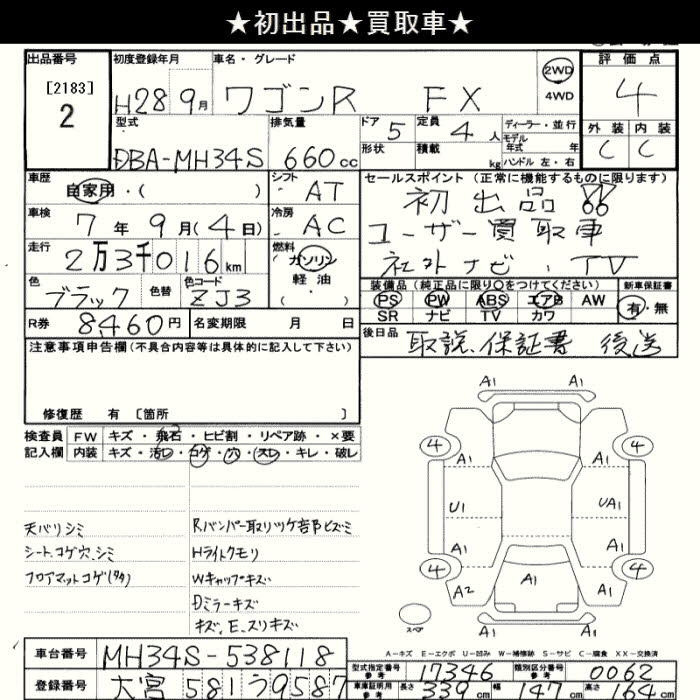 ★初出品★買取車★
出品番号 初度登録年月 車名・グレード 評価点
[2183] 2 H28 9月 ワゴンR FX 2WD 4WD 4
型式 排気量 ドア 5 定員 4人 ディーラー・並行 外装 内装
DBA-MH34S 660cc 形状 積載 kg モデル年式 年 ハンドル 左・右 C C
車歴 自家用・( ) シフト AT セールスポイント (正常に機能するものに限ります)
車検 7年9月(4日) 冷房 AC 初出品!!
ユーザー買取車
走行 2万3千016km 燃料 ガソリン 軽油 ・( ) 社外ナビ・TV
色 ブラック 色替 色コード ZJ3 装備品 (純正品に限り○をつけてください) 新車保証書
PS PW ABS エアB AW 有・無
SR ナビ TV カワ
R券 8,460円 名変期限 月 日 後日品 取説、保証書 後送
注意事項申告欄 (不具合内容等は具体的に記入して下さい)
修復歴 有 〔箇所 〕
検査員 FW キズ・飛石・ヒビ割・リペア跡・×要
記入欄 内装 キズ・汚レ・コゲ・穴・スレ・キレ・破レ
天バリシミ
シートコゲ穴、シミ
フロアマットコゲ(タタ)
Rバンパー取リツケ部ヒズミ
Hライトクモリ
Wキャップキズ
Dミラーキズ
キズ、E、スリキズ
A1 A1
4 A1 A1 4
U1 UA1
A1 A1
4 A1 4
A2 A1
スペア A1
A-キズ E-エクボ U-凹み W-補修跡 S-サビ C-腐食 XX-交換済
車台番号 MH34S-538118
登録番号 大宮 581 う 9587
型式指定番号 参考 17346 類別区分番号 参考 0062
車庫証明用 参考 長さ 339cm 幅 147cm 高さ 164cm